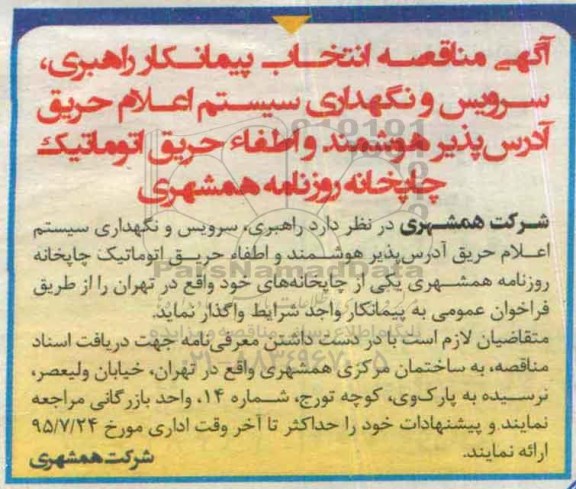 آگهی مناقصه انتخاب پیمانکار راهبری،
سرویس و نگهداری سیستم اعلام حریق
آدرس‌پذیر هوشمند و اطفاء حریق اتوماتیک
چاپخانه روزنامه همشهری
شرکت همشهری در نظر دارد راهبری، سرویس و نگهداری سیستم
اعلام حریق آدرس‌پذیر هوشمند و اطفاء حریق اتوماتیک چاپخانه
روزنامه همشهری یکی از چاپخانه‌های خود واقع در تهران را از طریق
فراخوان عمومی به پیمانکار واجد شرایط واگذار نماید.
متقاضیان لازم است با در دست داشتن معرفی‌نامه جهت دریافت اسناد
مناقصه، به ساختمان مرکزی همشهری واقع در تهران، خیابان ولیعصر،
نرسیده به پارک‌وی، کوچه تورج، شماره ۱۴، واحد بازرگانی مراجعه
نمایند و پیشنهادات خود را حداکثر تا آخر وقت اداری مورخ ۹۵/۷/۲۴
ارائه نمایند.
شرکت همشهری
ParsNamadData